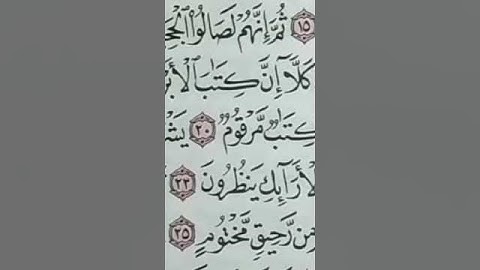 ١٥ ثُمَّ إِنَّهُمْ لَصَالُوا۟
كَلَّآ إِنَّ كِتَٰبَ
كِتَٰبٌ مَّرْقُومٌ ٢٠
ٱلْأَرَآئِكِ يَنظُرُونَ ٢٣
مِن رَّحِيقٍ مَّخْتُومٍ ٢٥